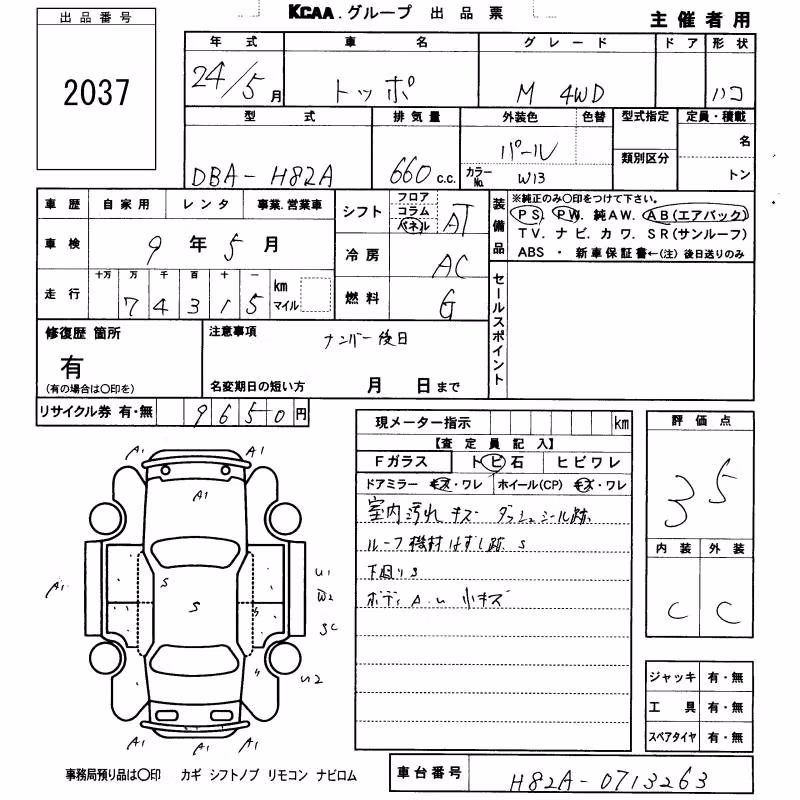 KCAA.グループ 出品票
主催者用
出品番号
2037
年式 車名 グレード ドア 形状
24/5月 トッポ M 4WD ハコ
型式 排気量 外装色 色替 型式指定 定員・積載
DBA-H82A 660 c.c. パール 類別区分 名
カラーNo. W13 トン
車歴 自家用 レンタ 事業.営業車
車検 9年5月
走行 十万 万 千 百 十 一 km マイル
74315
シフト フロア コラム パネル AT
冷房 AC
燃料 G
装備品 ※純正のみ〇印をつけて下さい。
PS PW. 純AW. AB(エアバック)
TV. ナビ. カワ. SR(サンルーフ)
ABS ・ 新車保証書←(注) 後日送りのみ
セールスポイント
修復歴 箇所
有
(有の場合は〇印を)
注意事項 ナンバー後日
名変期日の短い方 月 日まで
リサイクル券 有・無 9650円
現メーター指示 km
【査定員記入】
Fガラス トビ石 ヒビワレ
ドアミラー キズ・ワレ ホイール(CP) キズ・ワレ
室内汚れ キズ ダッシュシール跡
ルーフ機材はずし跡 S
下回りS
ボディ A.U 小キズ
評価点
3 5
内装 外装
C C
ジャッキ 有・無
工具 有・無
スペアタイヤ 有・無
A1 A1
A1
U1
A1 S W2
S SC
U2
A1 A1
事務局預り品は〇印 カギ シフトノブ リモコン ナビロム
車台番号 H82A-0713263